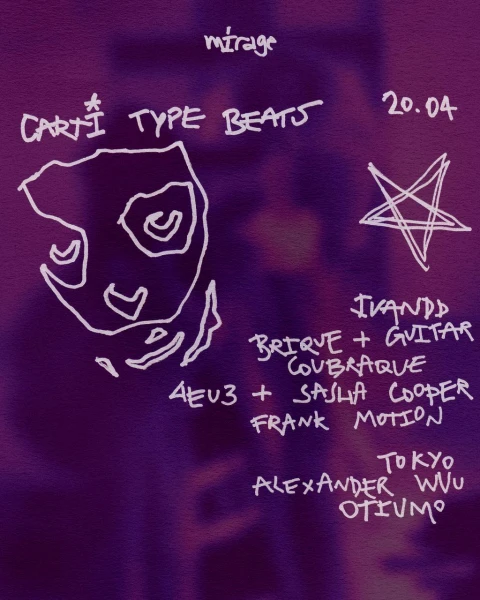 mirage
CARTI* TYPE BEATS
20.04
IVANDD
BRIQUE + GUITAR
COUBRAQUE
4EU3 + SASHA COOPER
FRANK MOTION
TOKYO
ALEXANDER WVU
OTIUMO